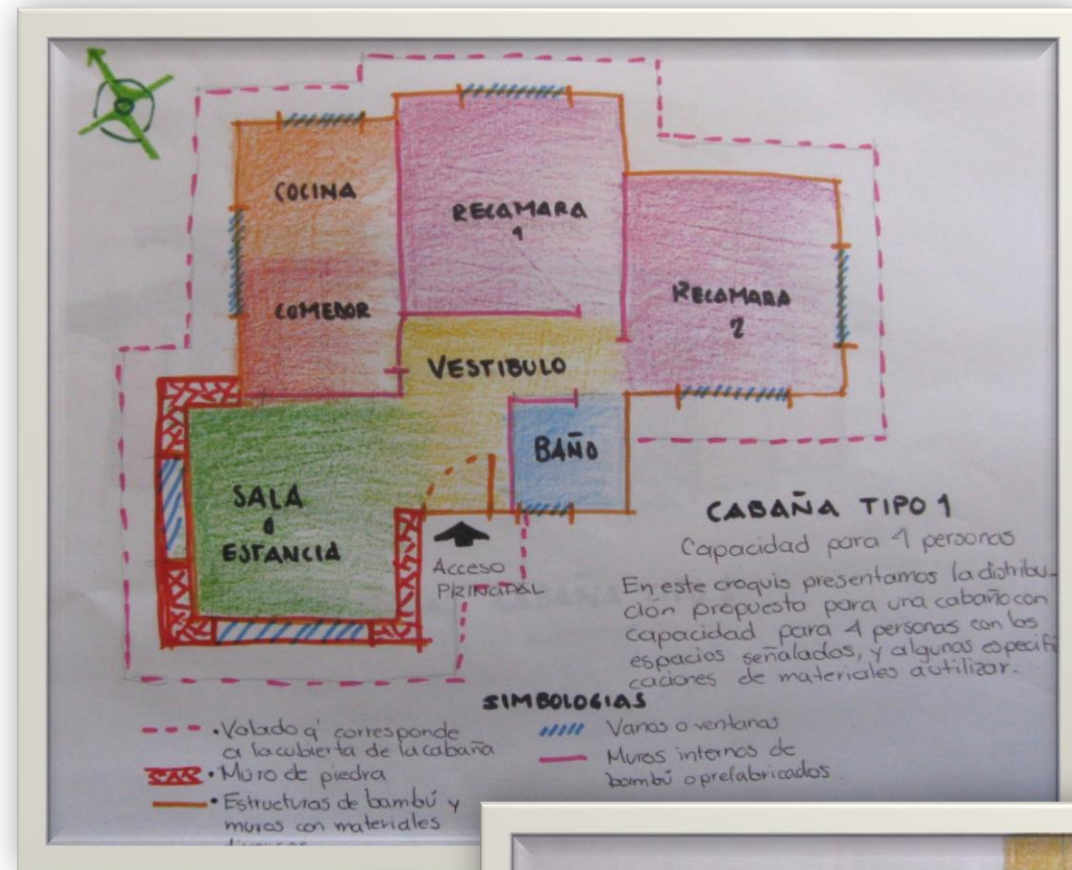 COCINA
RECAMARA
1
COMEDOR
RECAMARA
2
VESTIBULO
BAÑO
SALA
o
ESTANCIA
Acceso
PRINCIPAL
CABAÑA TIPO 1
Capacidad para 4 personas
En este croquis presentamos la distribu-
ción propuesta para una cabaña con
capacidad para 4 personas con los
espacios señalados, y algunas especifi
caciones de materiales a utilizar.
SIMBOLOGIAS
• Volado q' corresponde
a la cubierta de la cabaña
• Muro de piedra
• Estructuras de bambú y
muros con materiales
Vanos o ventanas
Muros internos de
bambú o prefabricados.